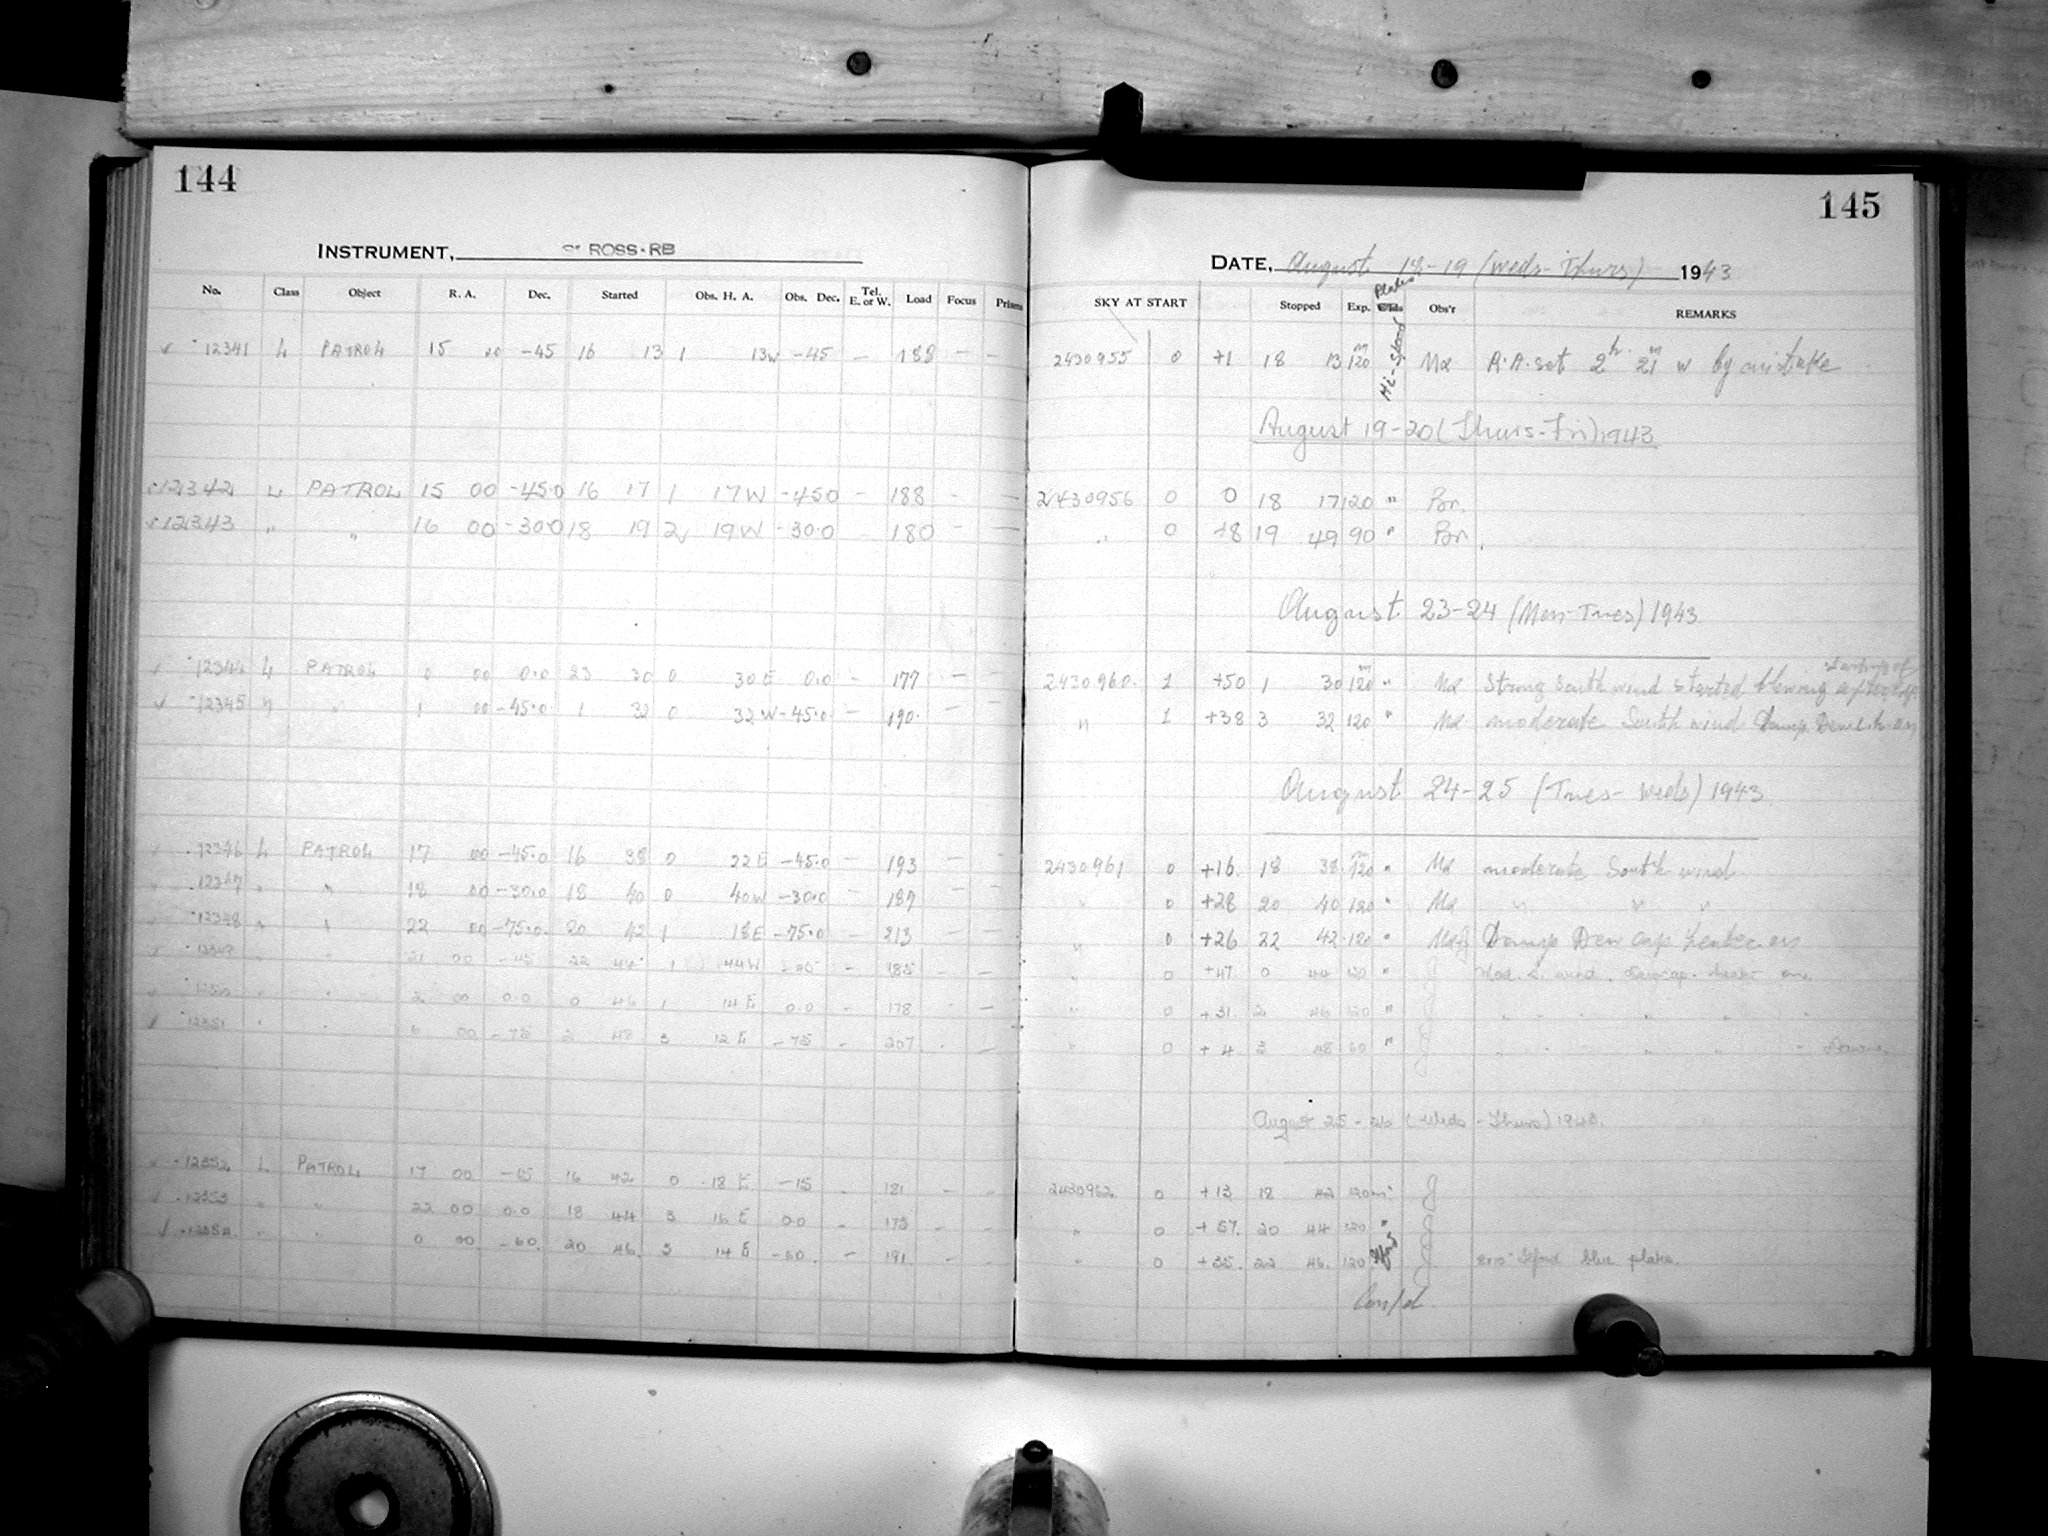 144
INSTRUMENT, ROSS-RB
No. Class Object R. A. Dec. Started Obs. H. A. Obs. Dec. Tel. E. or W. Load Focus Prism
12341 L PATROL 15 20 -45 16 13 1 13W -45 — 188 — —
12342 L PATROL 15 00 -45.0 16 17 1 17W -45.0 - 188 - —
12343 " " 16 00 -30.0 18 19 2 19W -30.0 180 - —
12344 L PATROL 0 00 0.0 23 30 0 30E 0.0 - 177 — —
12345 " " 1 00 -45.0 1 32 0 32W -45.0 — 190 — —
12346 L PATROL 17 00 -45.0 16 38 0 22E -45.0 — 193 — —
12347 " " 18 00 -30.0 18 40 0 40W -30.0 — 187 — —
12348 " " 22 00 -75.0 20 42 1 18E -75.0 — 213 — —
12349 " " 21 00 -45 22 44 1 44W -45 - 185 - —
12350 " " 2 00 0.0 0 46 1 14E 0.0 - 178 - —
12351 " " 6 00 -75 2 48 3 12E -75 - 207 - —
12352 L PATROL 17 00 -15 16 42 0 18E -15 - 181 - -
12353 " " 22 00 0.0 18 44 3 16E 0.0 - 175 - -
12354 " " 0 00 -60 20 46 3 14E -60 - 191 - -
145
DATE, August 18-19 (Weds-Thurs) 1943
SKY AT START Stopped Exp. Plates Obs'r REMARKS
2430955 0 +1 18 13 120m Hi-Speed Mx R.A. set 2h 21m W by mistake
August 19-20 (Thurs-Fri) 1943
2430956 0 0 18 17 120 " Bn.
" 0 +8 19 49 90 " Bn.
August 23-24 (Mon-Tues) 1943
2430960 1 +50 1 30 120m " Mx Strong South wind started blowing after
" 1 +38 3 32 120 " Mx moderate South wind Damp Dew on
August 24-25 (Tues-Weds) 1943
2430961 0 +16 18 38 120m " Mx moderate South wind
" 0 +28 20 40 120 " Mx " " "
" 0 +26 22 42 120 " Damp Dew cap heater on
" 0 +47 0 44 120 " J Mod. S. wind. Dewcap heater on.
" 0 +31 2 46 120 " J " " " "
" 0 +4 3 48 60 " J " " " "
August 25-26 (Weds-Thurs) 1943.
2430962 0 +13 18 42 120m " J
" 0 +57 20 44 120 " J
" 0 +35 22 46 120 J 8x10 Ilford blue plate.